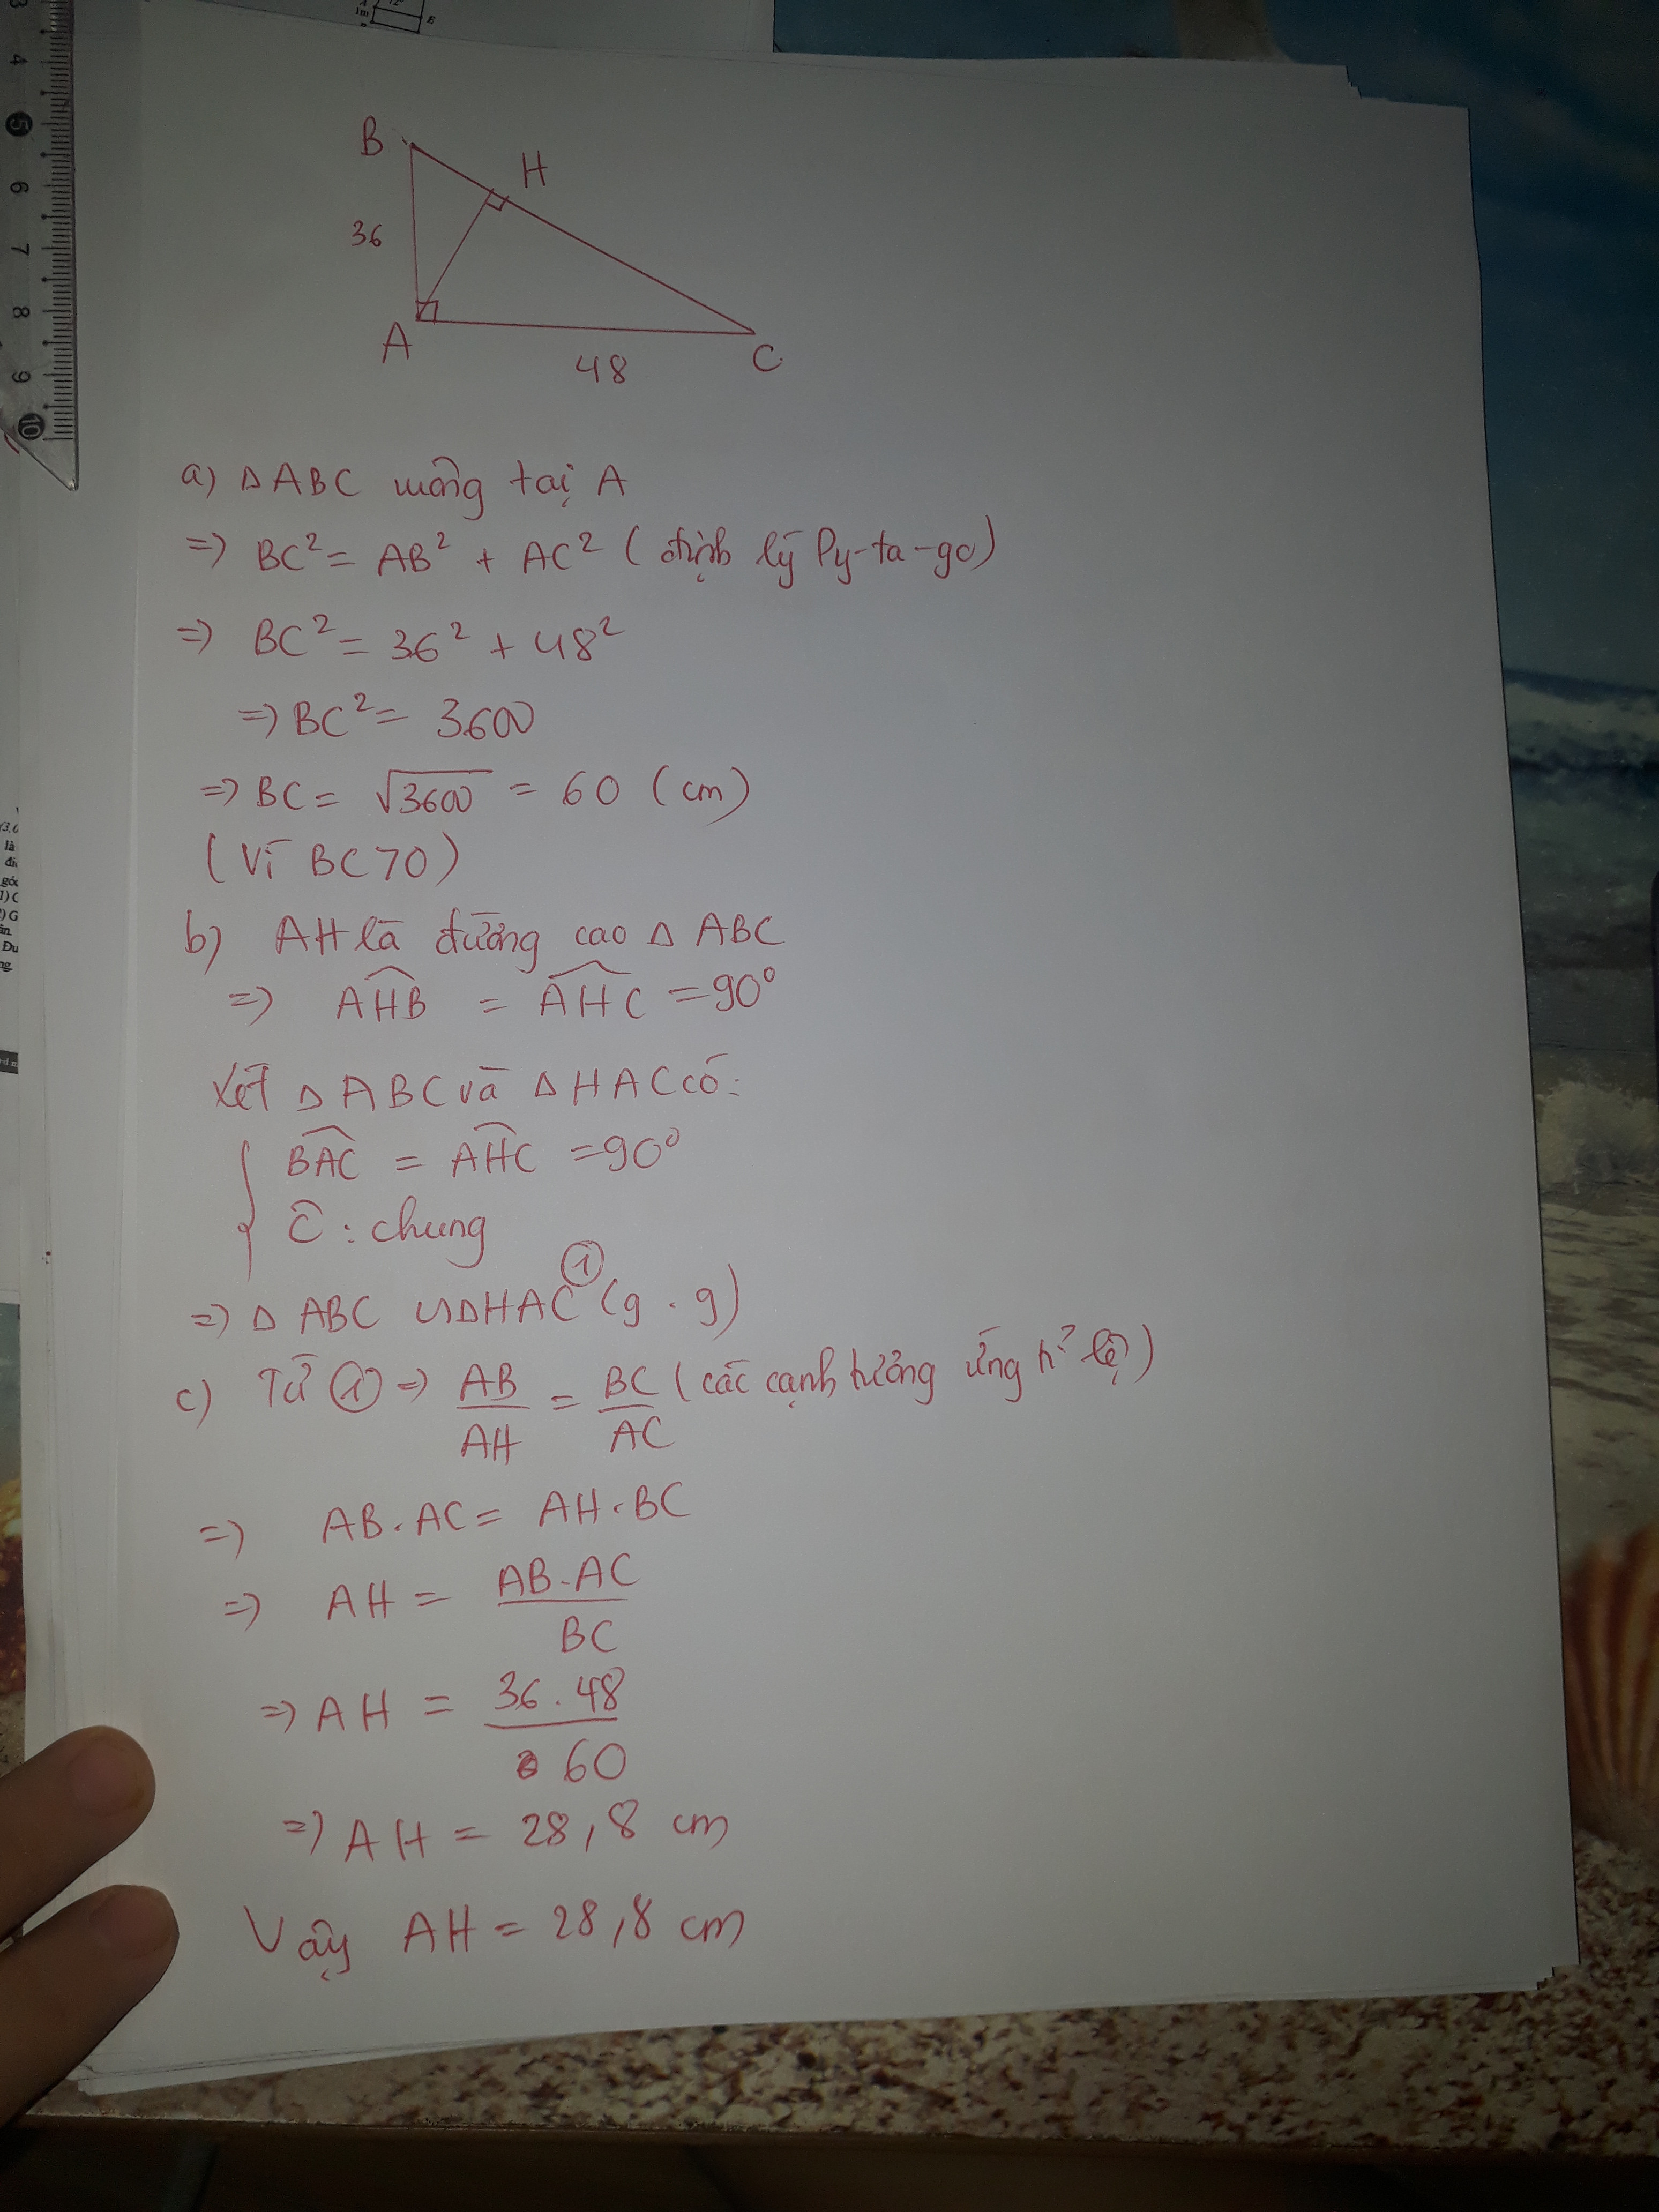 3
4
5
6
7
8
9
10
1m
E
B
H
36
A
48
C
a) Δ ABC vuông tại A
=> BC² = AB² + AC² (định lý Py-ta-go)
=> BC² = 36² + 48²
=> BC² = 3600
=> BC = √3600 = 60 (cm)
(Vì BC > 0)
b) AH là đường cao Δ ABC
=> \widehat{AHB} = \widehat{AHC} = 90°
Xét Δ ABC và Δ HAC có:
\widehat{BAC} = \widehat{AHC} = 90°
Ĉ : chung
=> Δ ABC ∽ Δ HAC ① (g.g)
c) Từ ① => AB/AH = BC/AC (các cạnh tương ứng tỉ lệ)
=> AB.AC = AH.BC
=> AH = AB.AC/BC
=> AH = 36.48/60
=> AH = 28,8 cm
Vậy AH = 28,8 cm
là
góc
1) C
2) G
Đu